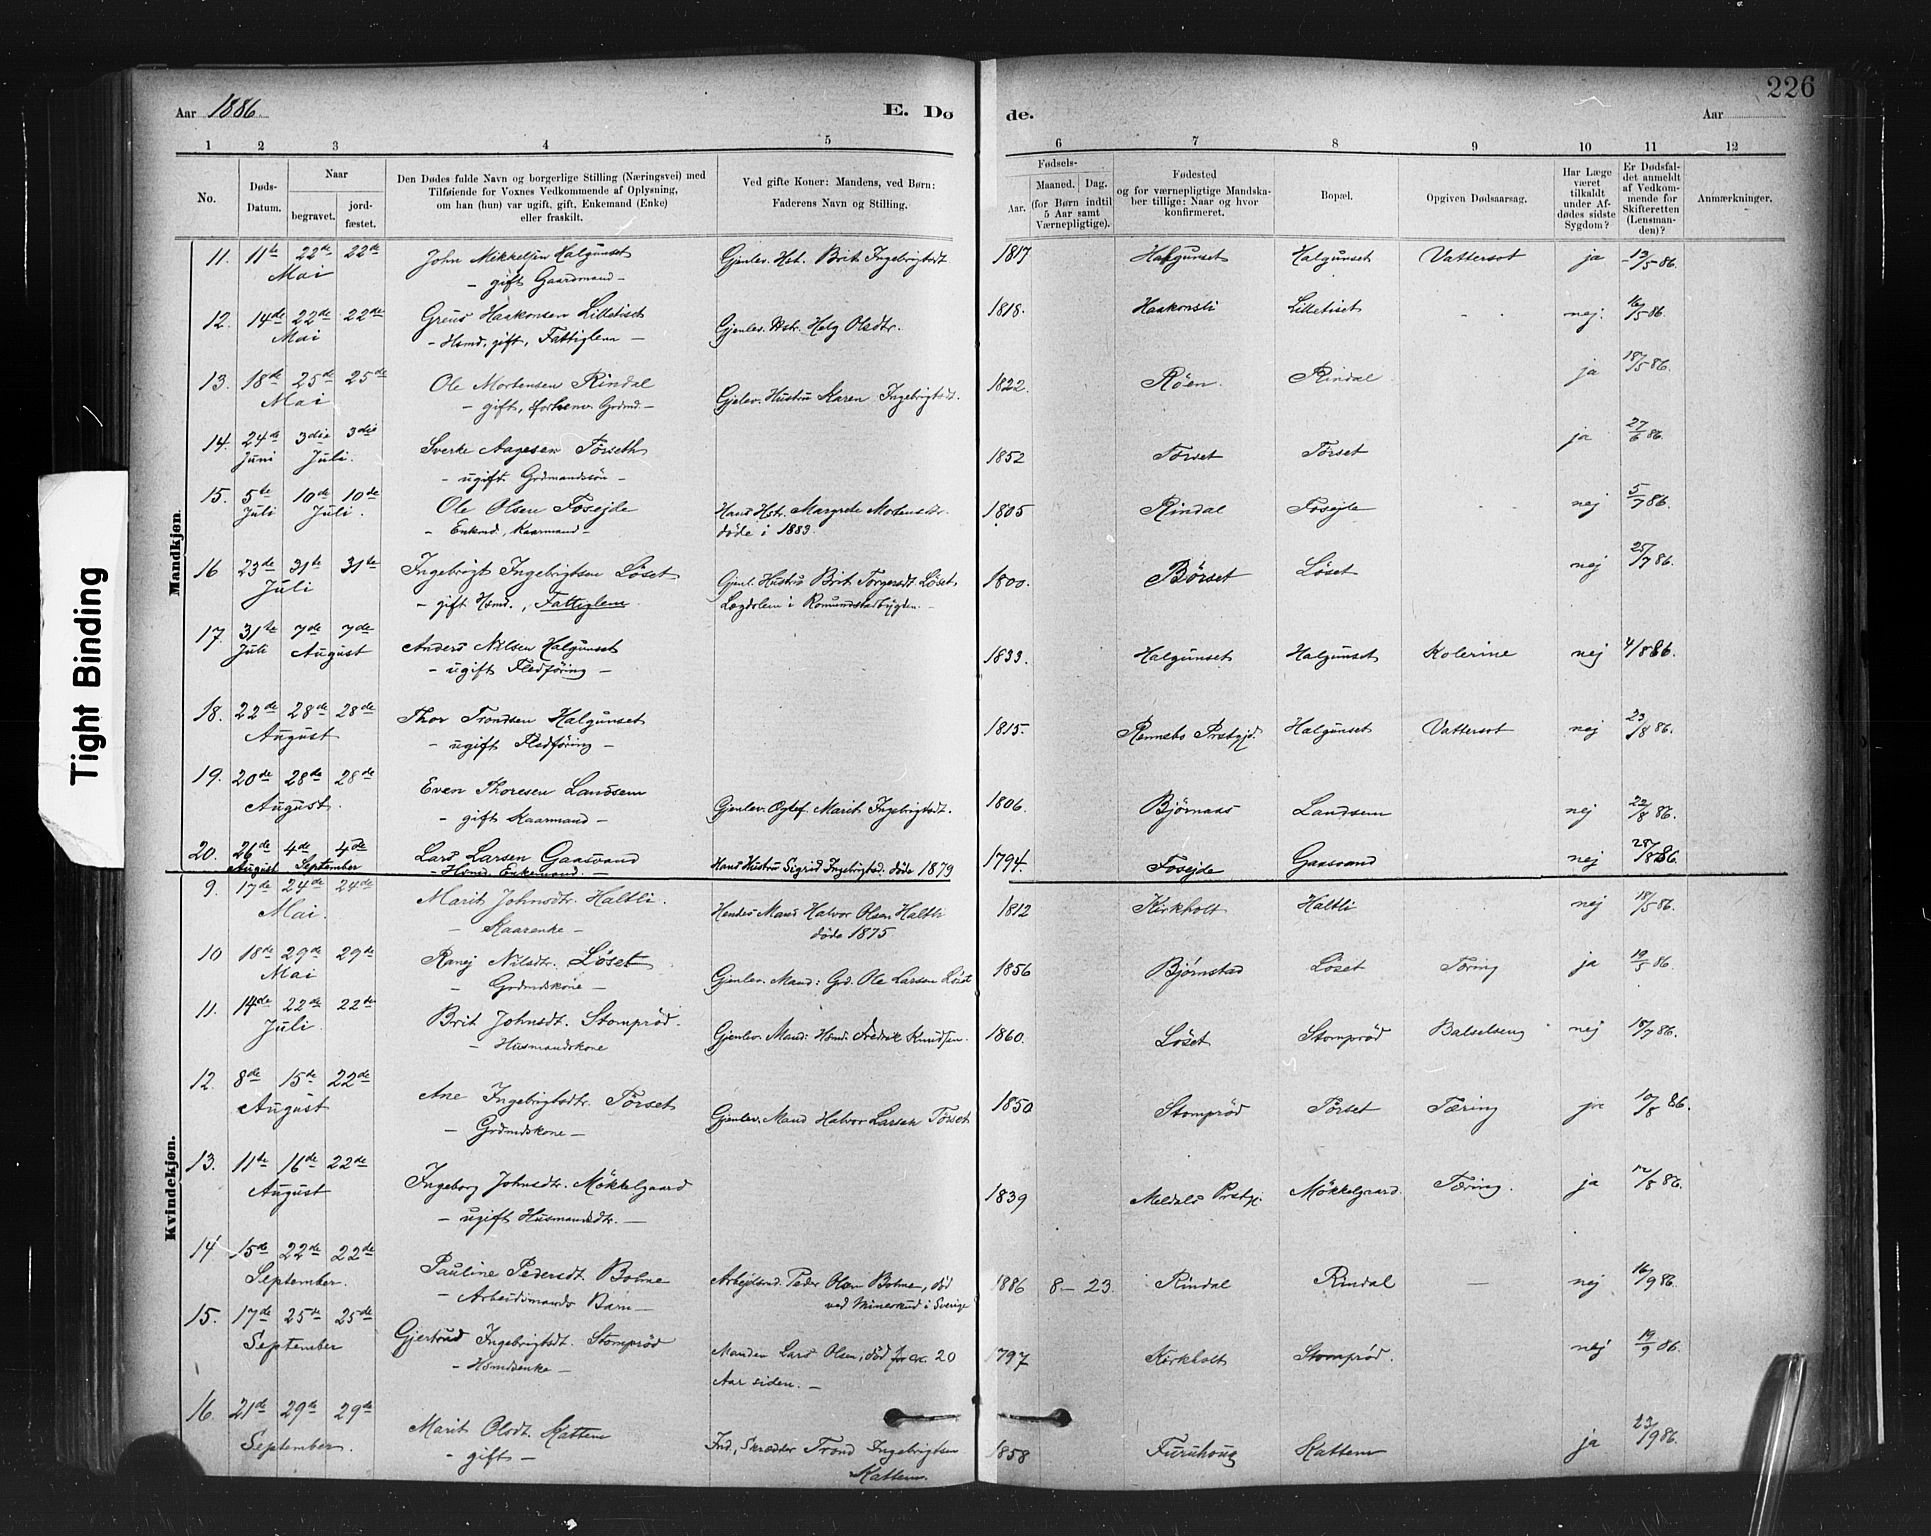 226
Aar 1886.
E. Dø
de.
Aar
1 2 3 4 5 6 7 8 9 10 11 12
No.
Døds-Datum.
Naar
begravet. jord-fæstet.
Den Dødes fulde Navn og borgerlige Stilling (Næringsvei) med
Tilføiende for Voxnes Vedkommende af Oplysning,
om han (hun) var ugift, gift, Enkemand (Enke)
eller fraskilt.
Ved gifte Koner: Mandens, ved Børn:
Faderens Navn og Stilling.
Fødsels-
Aar. Maaned. Dag.
(for Børn indtil
5 Aar samt
Værnepligtige).
Fødested
og for værnepligtige Mandska-
ber tillige: Naar og hvor
konfirmeret.
Bopæl.
Opgiven Dødsaarsag.
Har Læge
været
tilkaldt
under Af-
dødes sidste
Sygdom?
Er Dødsfal-
det anmeldt
af Vedkom-
mende for
Skifteretten
(Lensman-
den)?
Anmærkninger.
Tight Binding
Mandkjøn.
11. 11te 22de 22de John Mikkelsen Halgunset Gjenlev. Hst. Brit Ingebrigtsdt. 1817 Halgunset Halgunset Vattersot ja 13/5 86.
Mai - gift Gaardmand -
12. 14de 22de 22de Greus Haakonsen Lilletiset Gjenlev. Hstr. Helg Olsdtr. 1818. Haakonsli Lilletiset - nej. 16/5 86.
Mai - Hsmd, gift, Fattiglem -
13. 18de 25de 25de Ole Mortensen Rindal Gjelev. Hustru Karen Ingebrigtsdt. 1822. Røen Rindal ja 18/5 86.
Mai - gift, forhenv. Grdmd. -
14. 24de 3die 3die Sverke Aagesen Tørseth 1852 Torset Tørset ja 27/6 86.
Juni Juli. - ugift. Grdmandssøn -
15. 5te 10de 10de Ole Olsen Fosejde Hans Hstr. Margrete Mortensdtr. 1805 Rindal Fosejde nej 5/7 86.
Juli Juli. - Enkmd, Kaarmand - døde i 1883.
16 23de 31te 31te Ingebrigt Ingebrigtsen Løset Gjenl. Hustru Brit Torgersdt. Løset 1800. Børset Løset nej 25/7 86.
Juli - gift Hsmd., Fattiglem. Lægdslem i Romundstadbygden. -
17. 31te 7de 7de Anders Nilsen Halgunset 1833. Halgunset Halgunset Kolerine nej 4/8 86.
Juli August - ugift Flødføring -
18. 22de 28de 28de Thor Trondsen Halgunset 1815. Rennebo Prstgjd. Halgunset Vattersot nej 23/8 86.
August - ugift Flødføring -
19. 20de 28de 28de Even Thoresen Landsem Gjenlev. Ægtef. Marit Ingebrigtsdt. 1806. Bjørnaas Landsem nej 22/8 86.
August. - gift Kaarmand -
20. 26de 4de 4de Lars Larsen Gaasvand Hans Hustru Sigrid Ingebrigtsd. døde 1879 1794. Fosejde Gaasvand nej 28/8 86.
August September - Hsmd, Enkemand -
Kvindekjøn.
9. 17de 24de 24de Marit Johnsdtr. Haltli. Hendes Mand Halvor Olsen Haltli 1812 Kirkholt Haltli nej 18/5 86.
Mai. - Kaarenke - døde 1875.
10 18de 29de 29de Ranej Nilsdtr. Løset Gjenlev. Mand: Grd. Ole Larsen Løset 1856 Bjørnstad Løset Tæring ja 19/5 86.
Mai - Grdmdskone -
11. 14de 22de 22de Brit Johnsdt. Stomprød. Gjenlev. Mand: Hsmd. Fredrik Knudsen. 1860. Løset Stomprød Balselseng nej 15/7 86.
Juli. - Husmandskone
12. 8de 15de 22de Ane Ingebrigtsdtr. Tørset Gjenlev. Mand Halvor Larsen Tørset 1850 Stomprød Tørset Tæring ja 10/8 86.
August - Grdmdskone -
13. 11te 16de 22de Ingeborg Johnsdtr. Møkkelgaard 1839 Meldals Prstgj. Møkkelgaard. Tæring. ja 12/8 86.
August - ugift Husmandsdtr. -
14 15de 22de 22de Pauline Pedersdt. Bolme Arbejdsmd. Peder Olsen Bolme, død 1886 8 - 23. Rindal Rindal - nej 16/9 86.
September. - Arbeidsmands Barn - ved Mineskud i Sverige
15. 17de 25de 25de Gjertrud Ingebrigtsdt. Stomprød Manden Lars Olsen, død for ca. 20 1797 Kirkholt Stomprød. nej 19/9 86.
September - Hsmdsenke - Aar siden. -
16. 21de 29de 29de Marit Olsdt. Kattem Ind., Skræder Trond Ingebrigtsen 1858 Furuhoug Kattem ja 23/9 86.
September. - gift - Kattem.